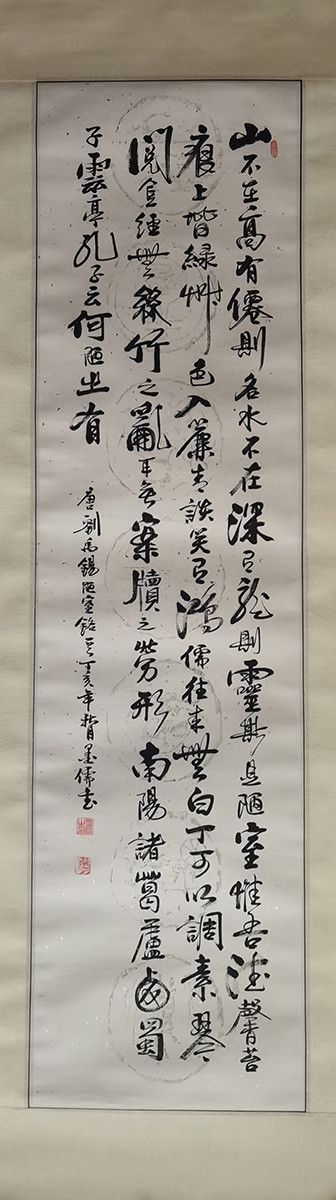 山不在高有僊則名水不在深有龍則靈斯是陋室惟吾德馨苔
痕上堦綠艸色入簾青談笑有鴻儒往来無白丁可以調素琴
閱金經無絲竹之亂耳無案牘之勞形南陽諸葛廬西蜀
子雲亭孔子云何陋之有
唐劉禹錫陋室銘丁亥年墨儒書